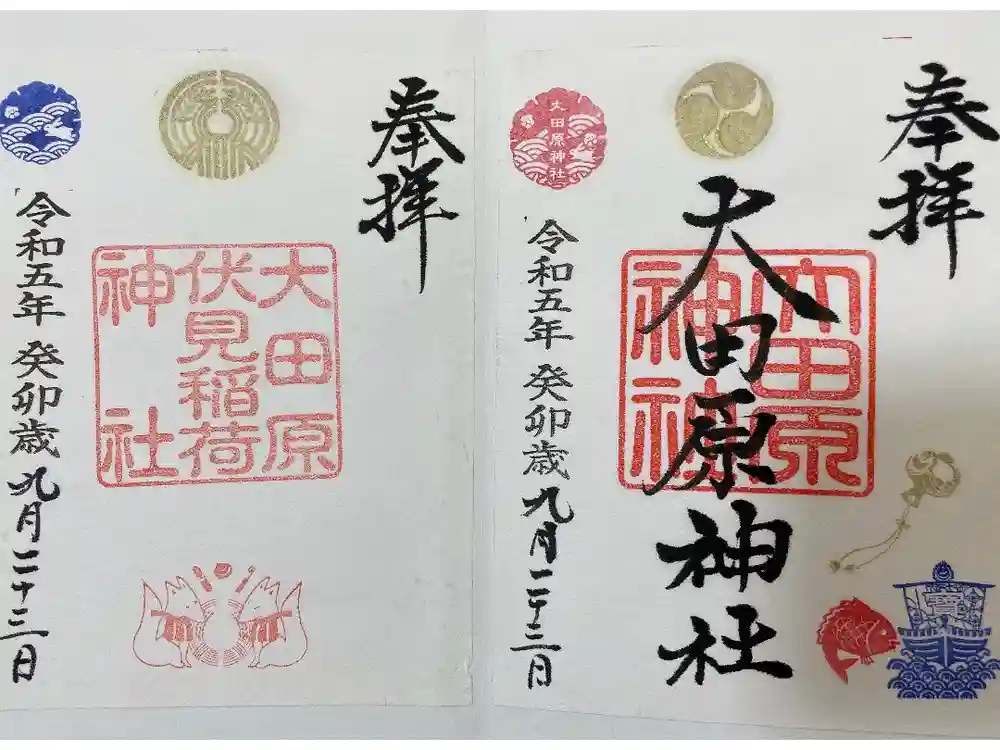 奉拝
大田原神社
大田原
神社
寶
大田原神社
令和五年 癸卯歳 九月二十三日
奉拝
大田原
伏見稲荷
神社
令和五年 癸卯歳 九月二十三日